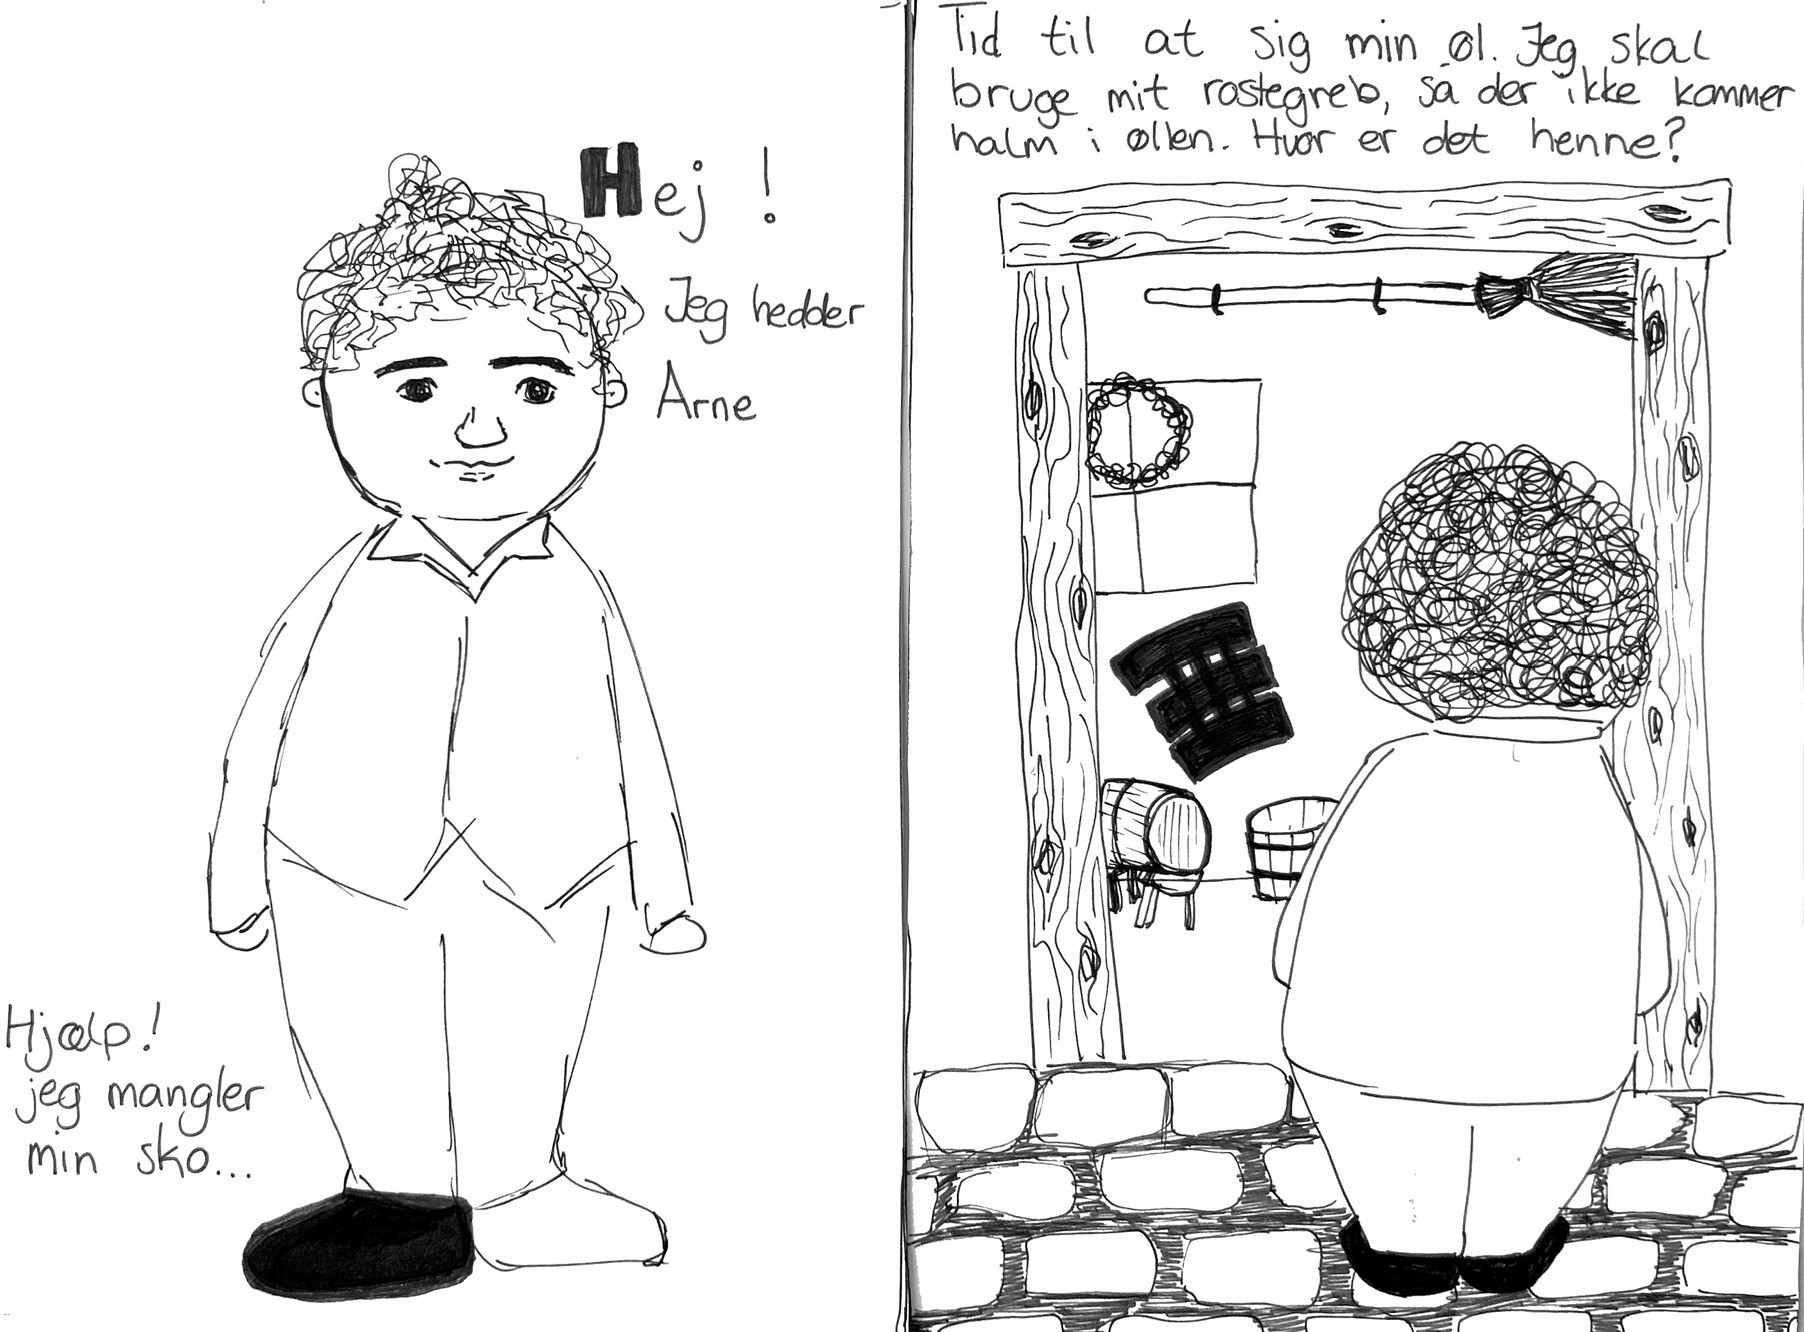 Hej!
Jeg hedder
Arne
Hjælp!
jeg mangler
min sko...
Tid til at sig min øl. Jeg skal
bruge mit rostegreb, så der ikke kommer
halm i øllen. Hvor er det henne?